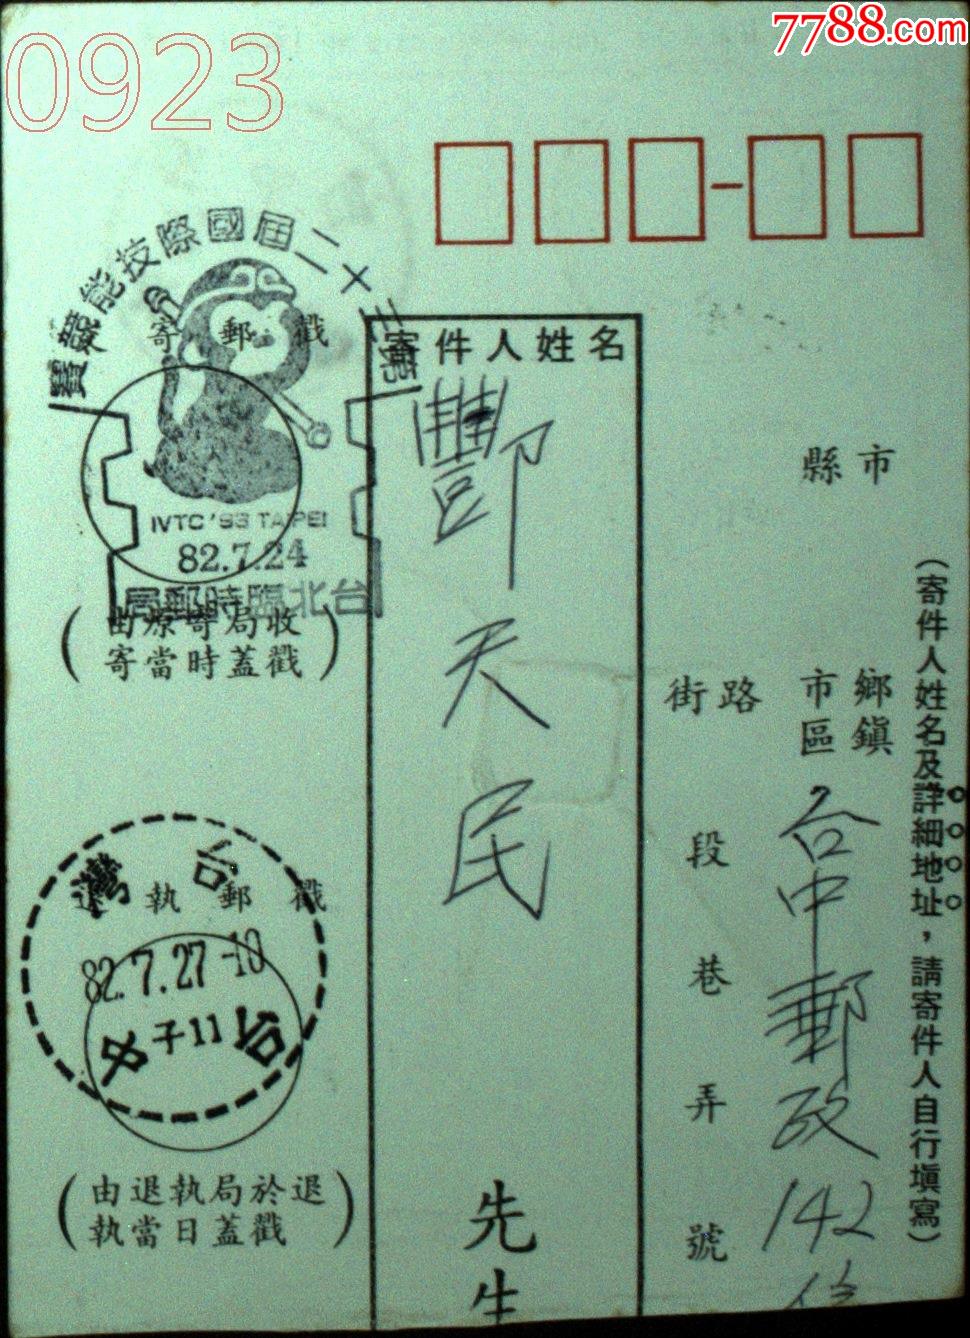 7788.com
0923
寄件人姓名
鄷天民
先生
第三十二屆國際技能競賽
寄郵戳
IVTC '93 TAIPEI
82.7.24
台北臨時郵局
(由原寄局收
寄當時蓋戳)
台灣
退執郵戳
82.7.27-10
子11
台中
(由退執局於退
執當日蓋戳)
縣市
鄉鎮
市區
街路
段
巷
弄
號
台中郵政142
(寄件人姓名及詳細地址，請寄件人自行填寫)